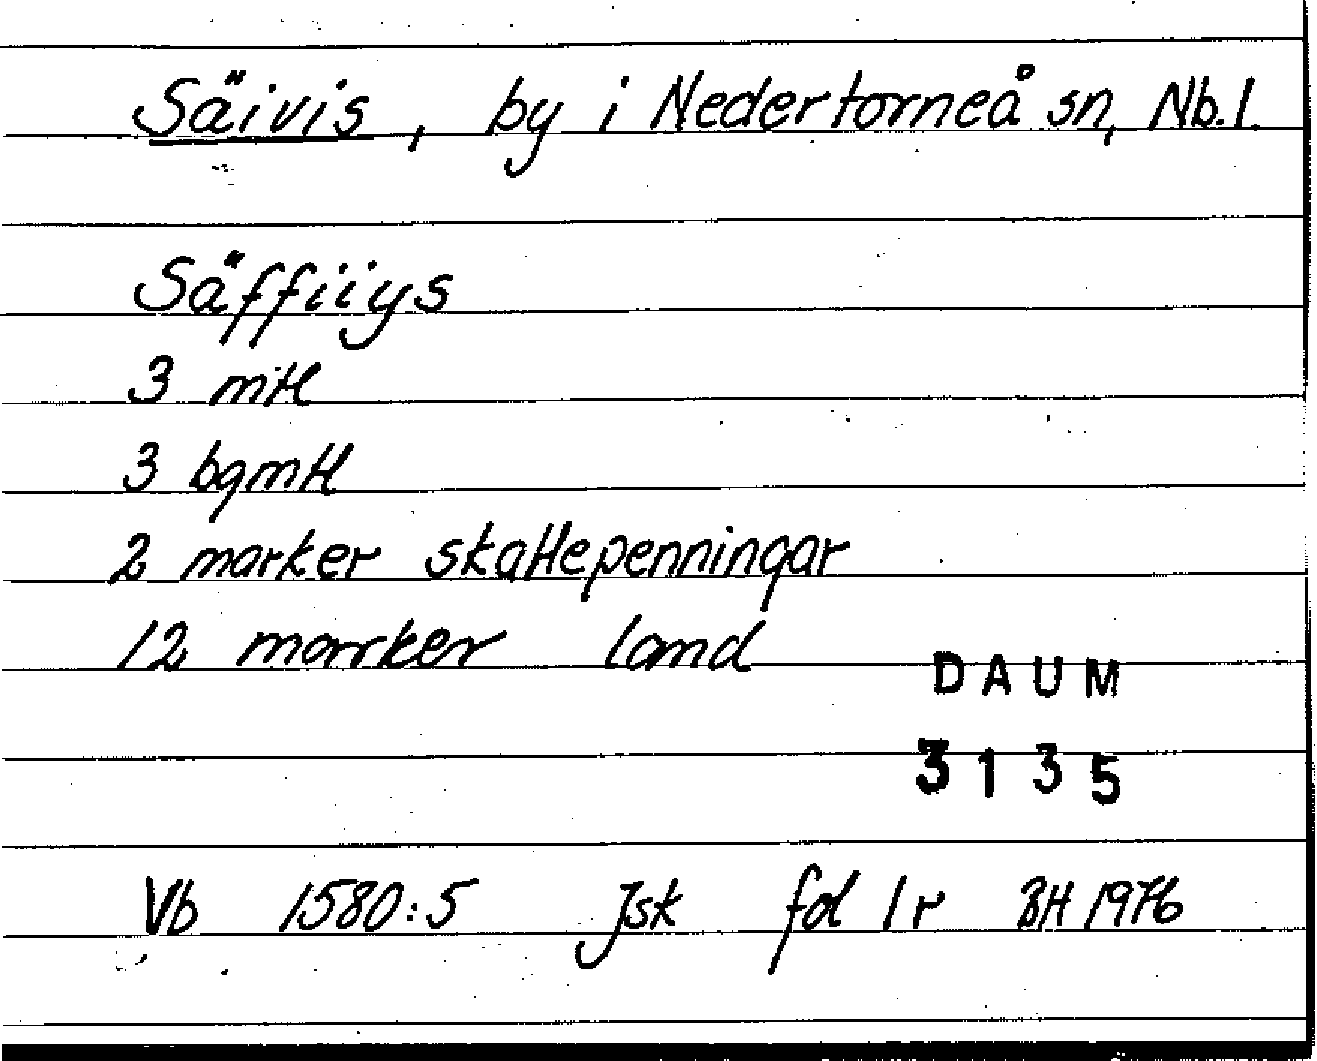 Säivis, by i Nedertorneå sn, Nb. l.
Säffiiys
3 mtl
3 bgmtl
2 marker skattepenningar
12 marker land
DAUM
3135
Vb 1580:5 Jsk fol 1r BH 1976